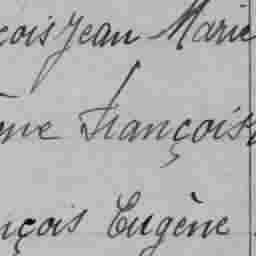 çois Jean Marie
me François
nçois Eugène